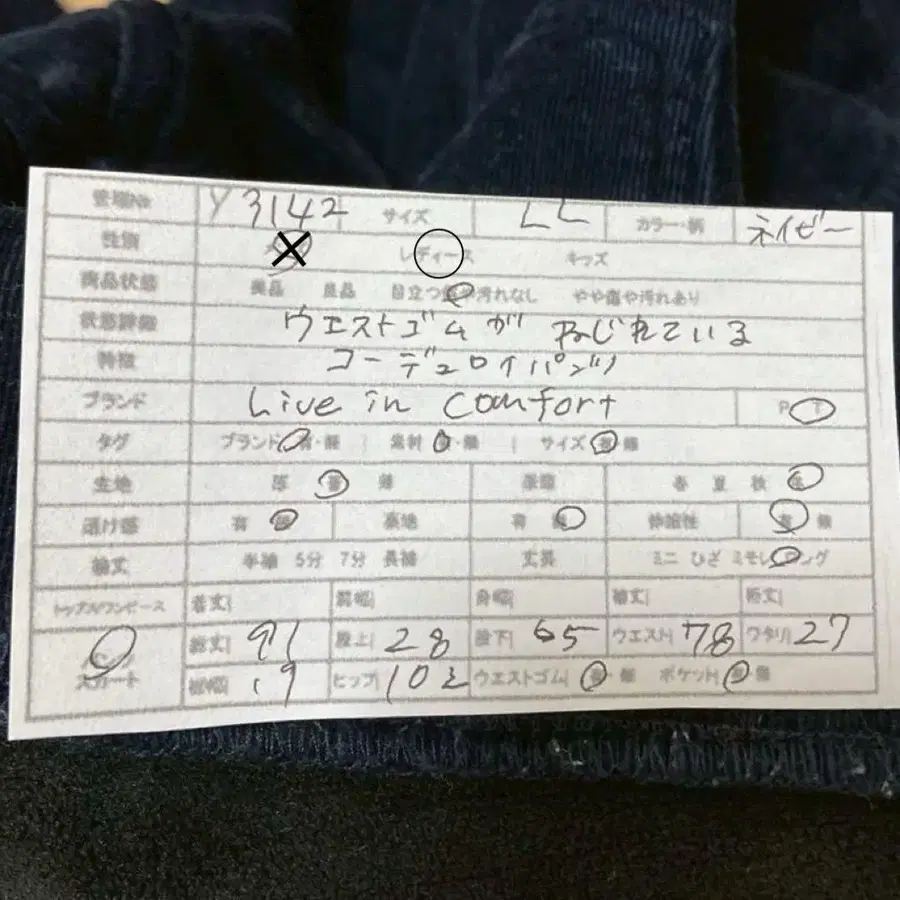 管理No Y3142 サイズ LL カラー・柄 ネイビー
性別 レディース キッズ
商品状態 美品 良品 目立つ傷や汚れなし やや傷や汚れあり
状態詳細 ウエストゴムがねじれている
特徴 コーデュロイパンツ
ブランド Live in comfort P T
タグ ブランド 有・無 | 素材 有・無 | サイズ 有・無
生地 厚 普 薄 季節 春 夏 秋 冬
透け感 有 無 裏地 有 無 伸縮性 有 無
袖丈 半袖 5分 7分 長袖 丈長 ミニ ひざ ミモレ ロング
トップス/ワンピース 着丈| 肩幅| 身幅| 袖丈| 裄丈|
パンツ スカート 総丈| 91 股上| 28 股下| 65 ウエスト| 78 ワタリ| 27
裾幅| 19 ヒップ| 102 ウエストゴム| 有・無 ポケット| 有・無